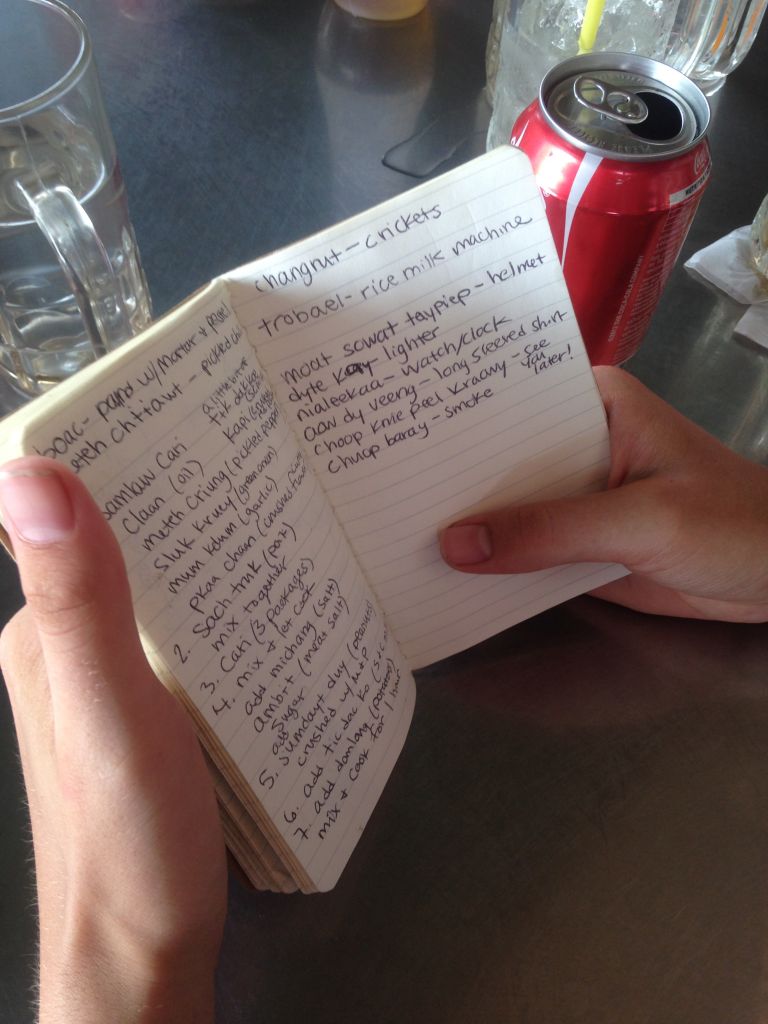 boac - pound w/mortar & pestel
meteh chttawt - pickled chili
a little bit of
tik dakka
kapi
samlaw cari
claan (oil)
meteh criung (pickled pepper)
sluk kruey (green onion)
mum kdum (garlic)
pkaa chan (crushed flower)
2. sach truk (pork)
mix together
3. Cari (3 packages)
4. mix & let cook
add michang (salt)
ambrt (meat salt)
add sugar
5. sumdayt duy (peanuts)
crushed w/m+p
6. add tic dac ko
7. add damlang (potatoes)
mix & cook for 1 hour
changrut - crickets
trobael - rice milk machine
moat sawat taypiep - helmet
dyte kay - lighter
nialeekaa - watch/clock
aaw dy veeng - long sleeved shirt
choop knie peel kraowy - see you later!
chuop baray - smoke